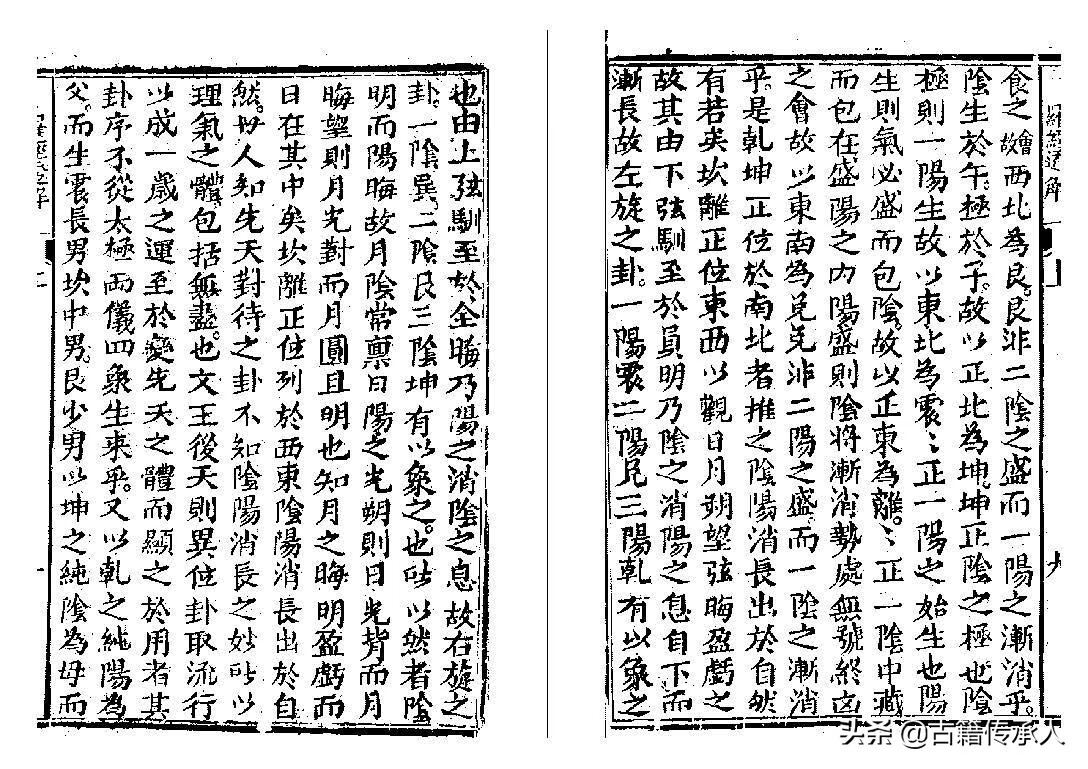 食之會故西北為艮。艮非二陰之盛而一陽之漸消乎。
陰生於午。極於子。故以正北為坤。坤正陰之極也陰
極則一陽生故以東北為震〻正一陽之始生也陽
生則氣必盛而包陰。故以正東為離。〻正一陰中藏
而包在盛陽之內陽盛則陰將漸消勢處無號終凶
之會故以東南為兌兌非二陽之盛而一陰之漸消
乎。是乾坤正位於南北者推之陰陽消長出於自然
有若矣坎離正位東西以觀日月朔望弦晦盈戲之
故其由下弦馴至於員明乃陰之消陽之息自下而
漸長故左旋之卦。一陽震二陽兄三陽乾有以象之
也由上弦馴至於全晦乃陽之消陰之息故右旋之
卦。一陰巽。二陰艮三陰坤有以象之。也所以然者陰
明而陽晦故月陰常稟日陽之光朔則日光背而月
晦望則月光對而月圓且明也知月之晦明盈戲而
日在其中矣坎離正位列於西東陰陽消長出於自
然。世人知先天對待之卦不知陰陽消長之妙所以
理氣之體包括無盡。也文王後天則異位卦取流行
以成一歲之運至於變先天之體而顯之於用者其
卦序不從太極兩儀四象生來乎。又以乾之純陽為
父。而生震長男坎中男。艮少男以坤之純陰為母而
頭条 @古籍传承人